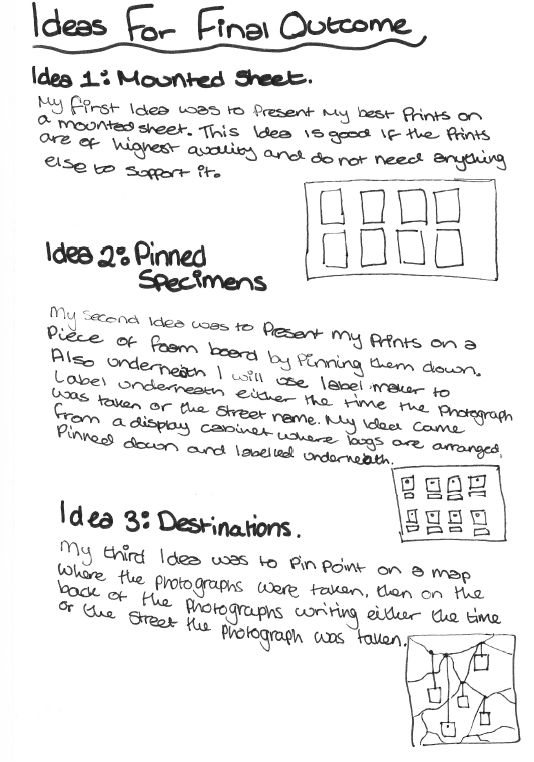 Ideas For Final Outcome
Idea 1: Mounted Sheet.
My first Idea was to Present My best Prints on
a mounted sheet. This Idea is good if the Prints
are of highest quality and do not need anything
else to support it.
Idea 2: Pinned
Specimens
My second Idea was to Present my Prints on a
Piece of foam board by Pinning them down.
Also underneath I will use label maker to
Label underneath either the time the Photograph
was taken or the street name. My Idea came
from a display cabinet where bugs are arranged,
Pinned down and labelled underneath.
Idea 3: Destinations.
My third Idea was to Pin Point on a map
where the Photographs were taken, then on the
back of the Photographs writing either the time
or the street the Photograph was taken.